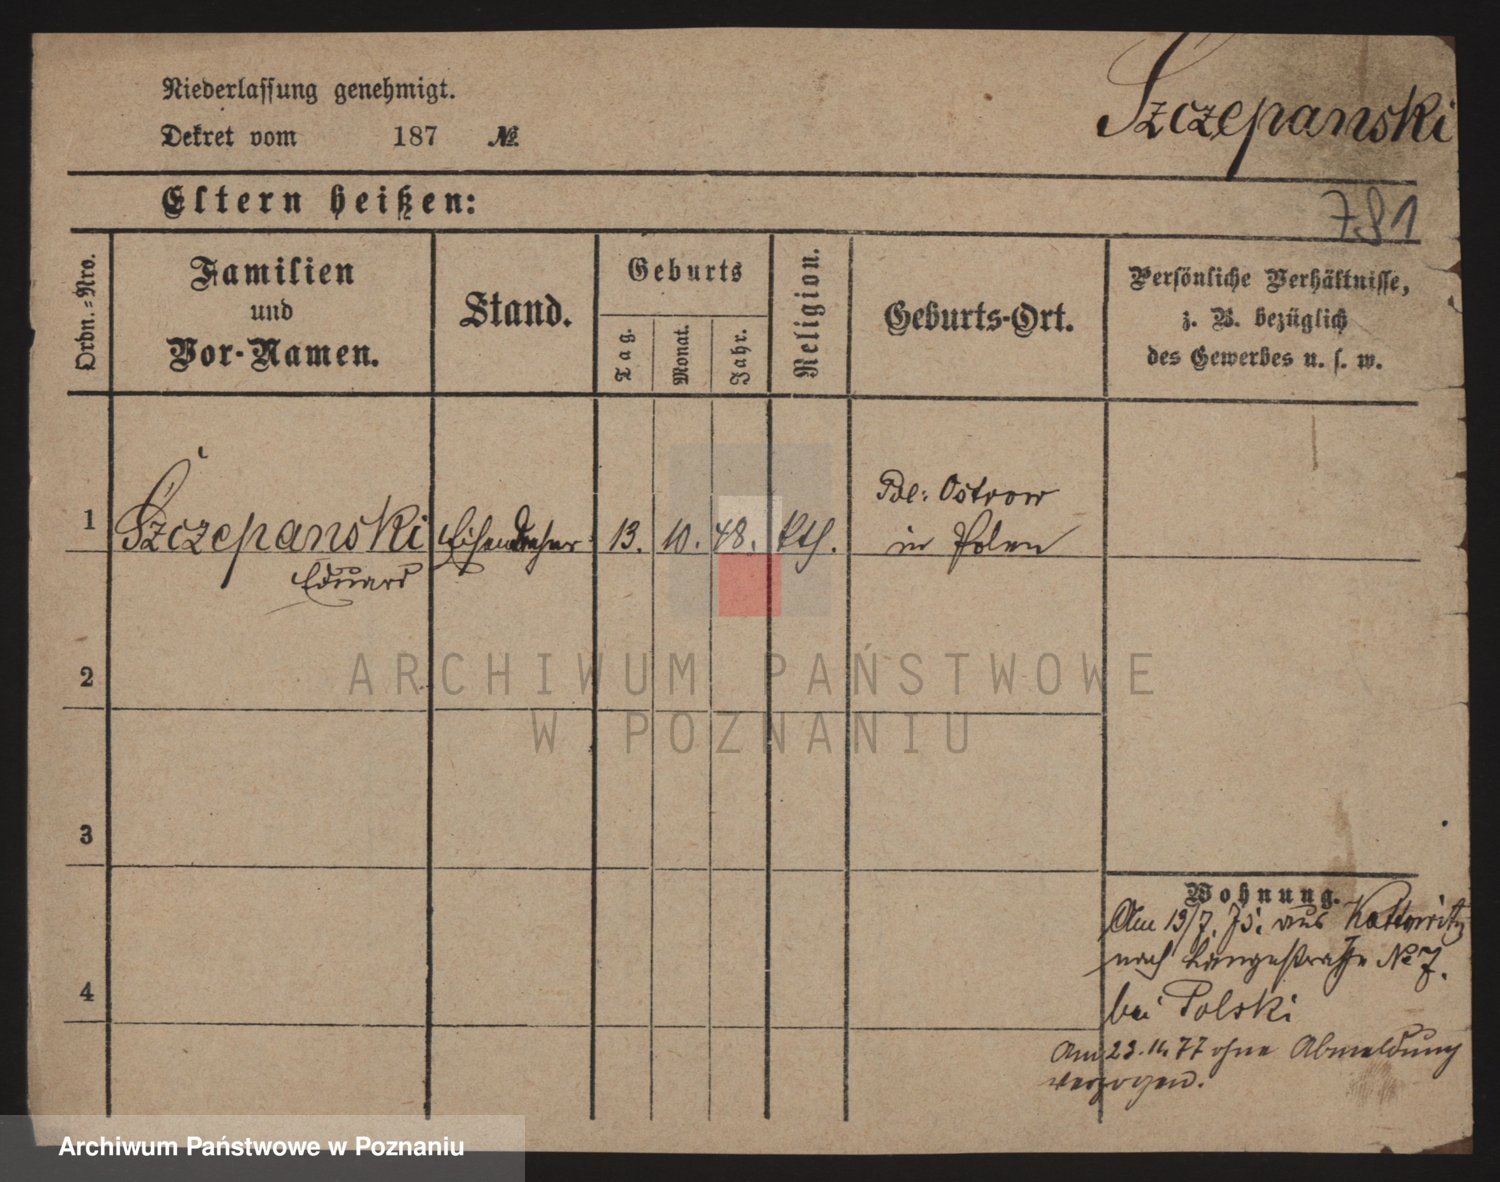 Szczepanski
Niederlassung genehmigt.
Dekret vom 187 №
Eltern heißen:
781
Ordn.-Nro.
Familien
und
Vor-Namen.
Stand.
Geburts
Tag.
Monat.
Jahr.
Religion.
Geburts-Ort.
Persönliche Verhältnisse,
z. B. bezüglich
des Gewerbes u. s. w.
1 Szczepanski Eisendreher 13. 10. 48. kth.
Eduard
Ostrow
in Polen
2
3
4
Wohnung.
Am 13/7. 75. aus Kattowitz
nach Langestraße № 7.
bei Polski
Am 23. 11. 77 ohne Abmeldung
verzogen.
ARCHIWUM PAŃSTWOWE
W POZNANIU
Archiwum Państwowe w Poznaniu